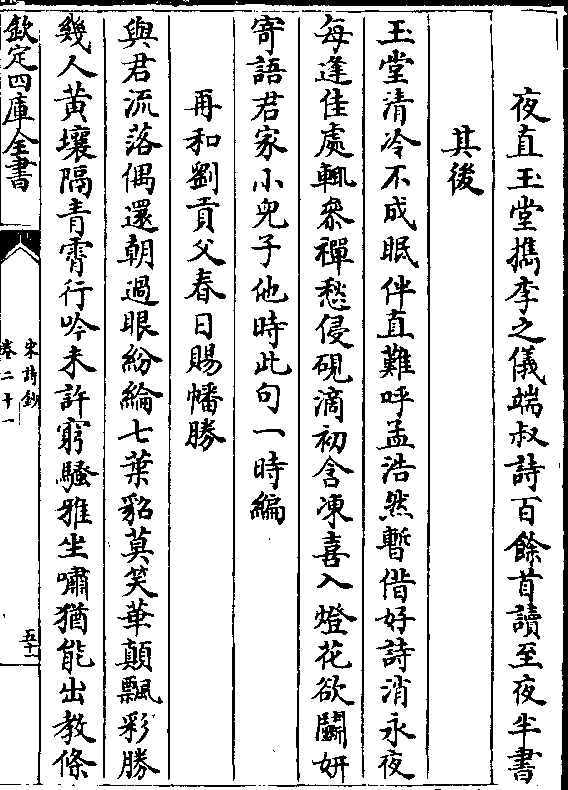 夜直玉堂擕李之儀端叔詩百餘首讀至夜半書
其後
玉堂清冷不成眠伴直難呼孟浩然暫借好詩消永夜
每逢佳處輒叅禪愁侵硯滴初含凍喜入燈花欲鬬妍
寄語君家小兒子他時此句一時編
再和劉貢父春日賜幡勝
與君流落偶還朝過眼紛綸七葉貂莫笑華顛飄彩勝
幾人黄壤隔青霄行吟未許窮騷雅坐嘯猶能出教條
欽定四庫全書
宋詩鈔
卷二十一
五十一